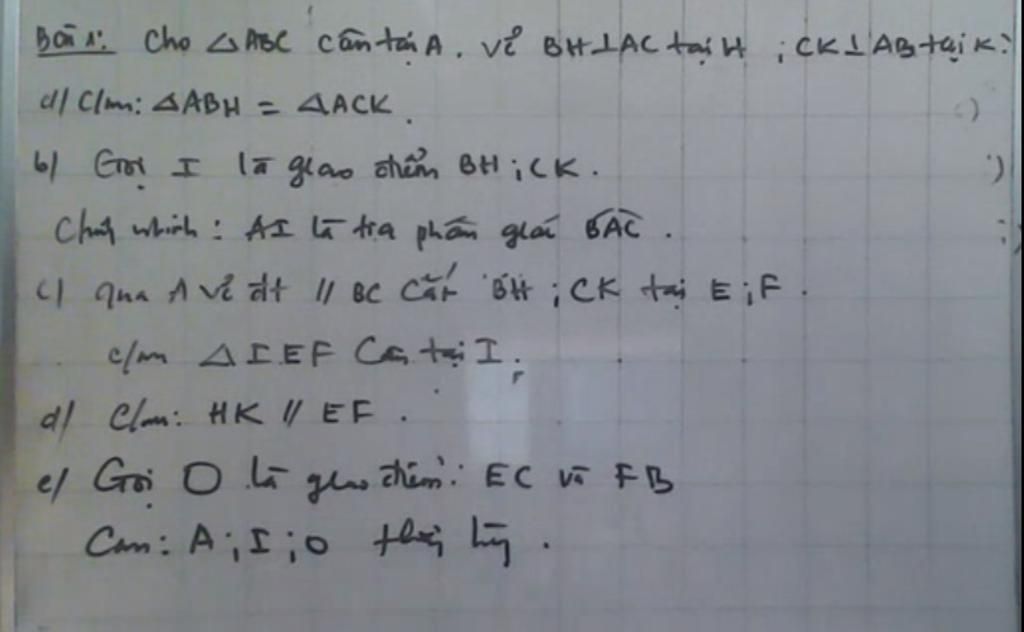 Bài 1: Cho △ABC cân tại A. Vẽ BH⊥AC tại H ; CK⊥AB tại K.
a/ C/m: △ABH = △ACK.
b/ Gọi I là giao điểm BH ; CK.
Chứng minh: AI là tia phân giác BAC.
c/ Qua A vẽ đt // BC cắt BH ; CK tại E ; F.
c/m △IEF Cân tại I.
d/ C/m: HK // EF.
e/ Gọi O là giao điểm: EC và FB
Cm: A ; I ; O thẳng hàng.